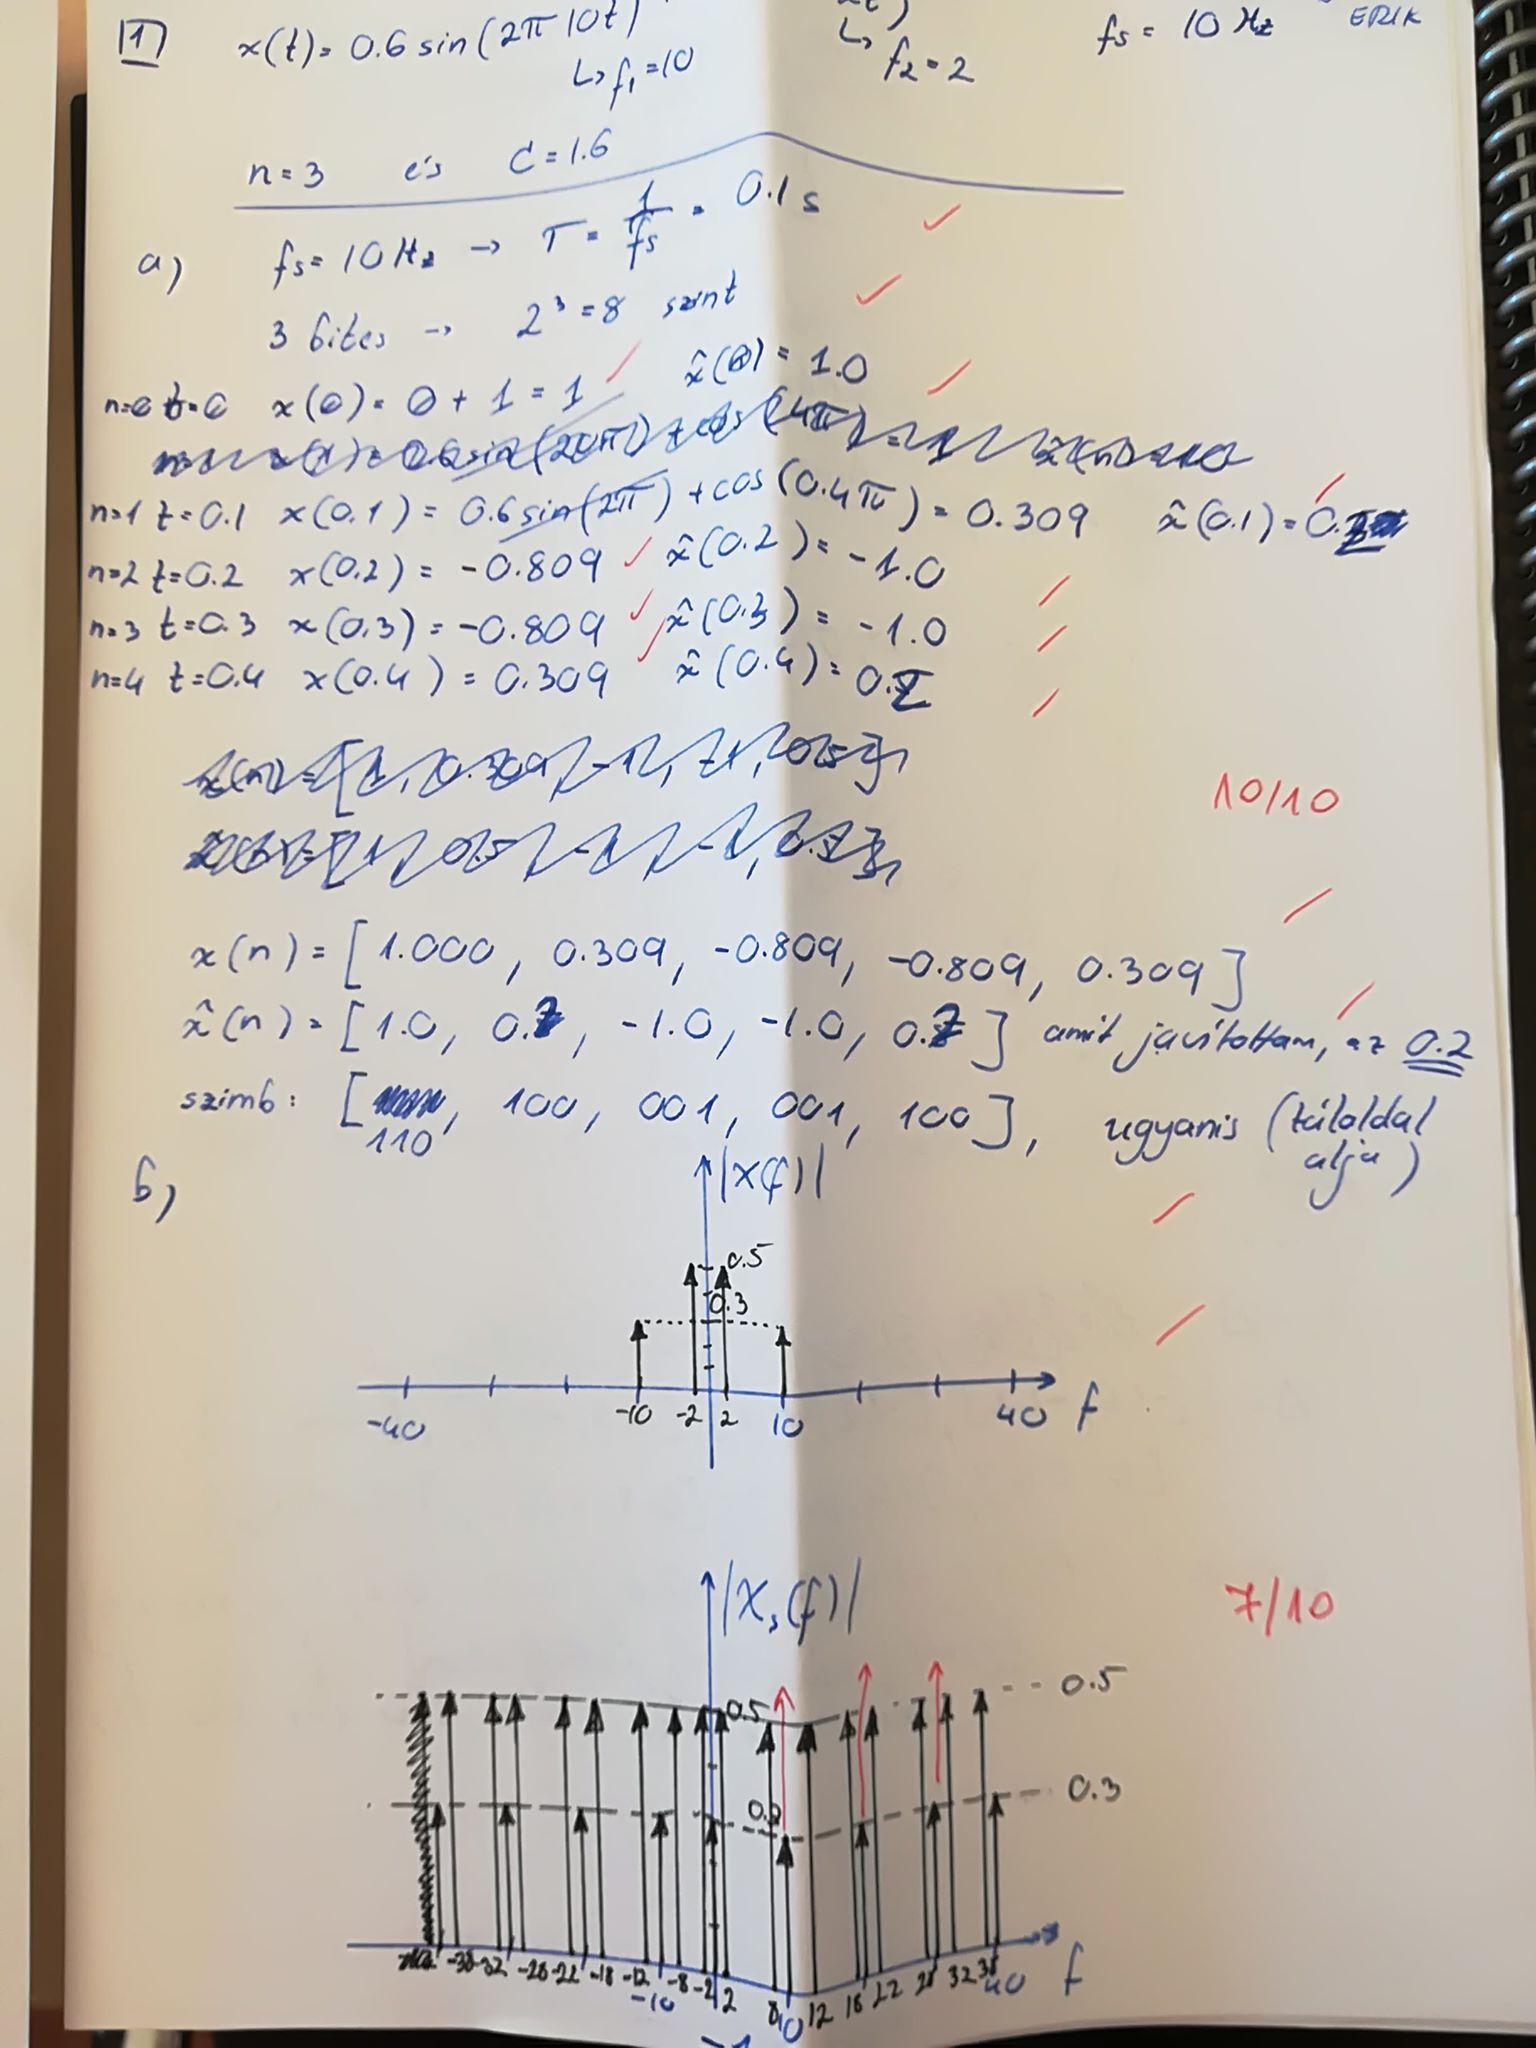 1 x(t)= 0.6 sin(2π 10t)
↳ f₁=10
↳ f₂=2
fs = 10 Hz
ERIK
n=3 és C=1.6
a) fs=10Hz → T = 1/fs = 0.1 s
3 bites → 2³=8 szint
n=0 t=0 x(0)= 0+1=1 x̂(0)=1.0
n=1 t=0.1 x(0.1)= 0.6 sin(2π)+cos(0.4π)=0.309 x̂(0.1)=0.2
n=2 t=0.2 x(0.2)=-0.809 x̂(0.2)=-1.0
n=3 t=0.3 x(0.3)=-0.809 x̂(0.3)=-1.0
n=4 t=0.4 x(0.4)=0.309 x̂(0.4)=0.2
10/10
x(n)=[1.000, 0.309, -0.809, -0.809, 0.309]
x̂(n)=[1.0, 0.2, -1.0, -1.0, 0.2] amit javítottam, az 0.2
szimb: [110, 100, 001, 001, 100], ugyanis (túloldal alja)
b) |X(f)|
0.5
0.3
-40 -10 -2 2 10 40 f
|Xs(f)|
7/10
0.5 0.5
0.3
-38 -32 -28 -22 -18 -12 -10 -8 -2 2 8 10 12 18 22 28 32 38 40 f